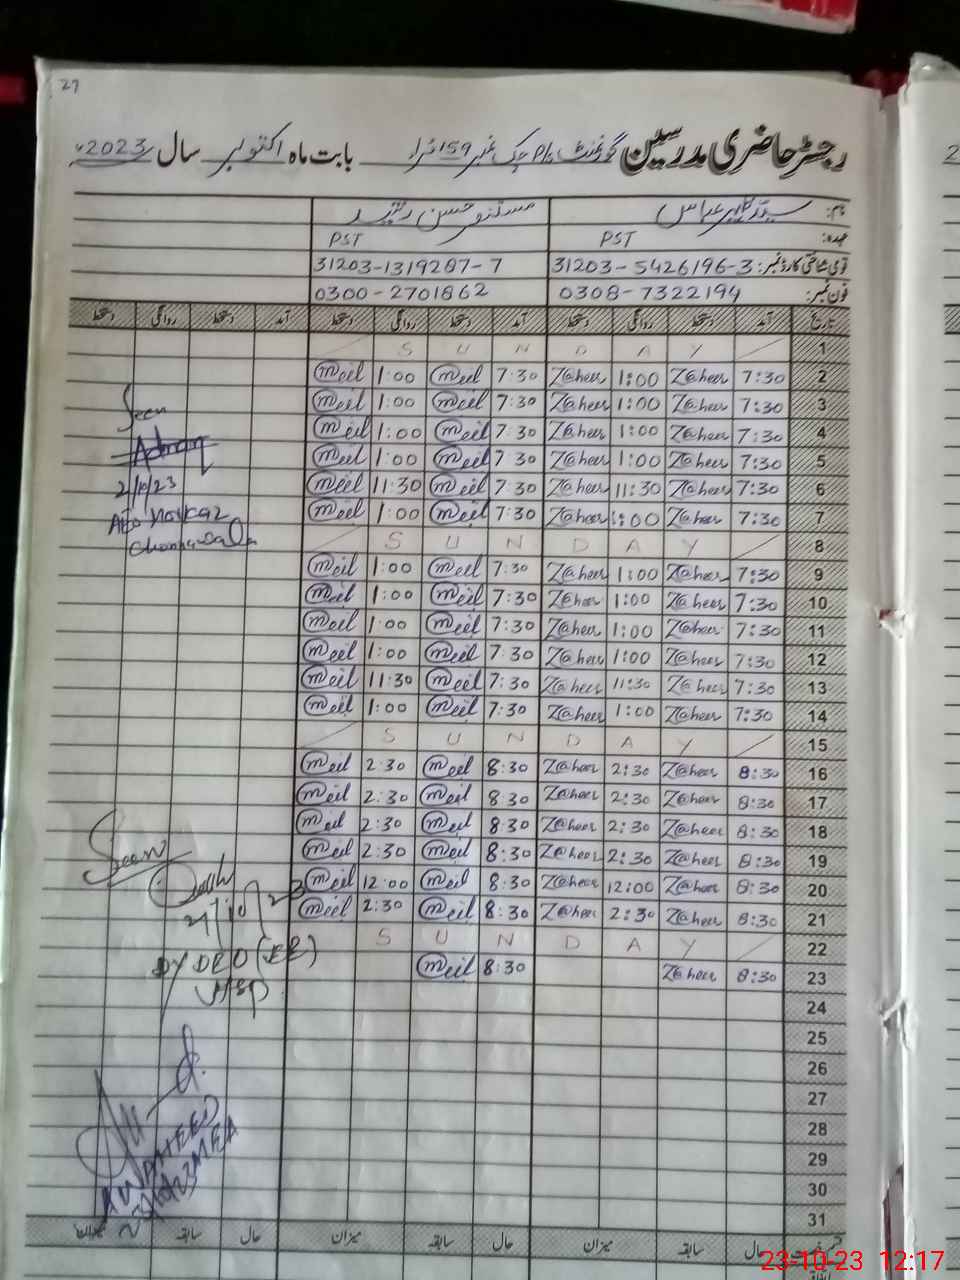 27
رجسٹر حاضری مدرسین گورنمنٹ P/S چک نمبر 159 مراد بابت ماہ اکتوبر سال 2023ء
نام: سید ظہیر عباس
عہدہ: PST PST
قومی شناختی کارڈ نمبر: 31203-5426196-3 31203-1319287-7
فون نمبر: 0308-7322194 0300-2701862
تاریخ آمد دستخط روانگی دستخط آمد دستخط روانگی دستخط آمد دستخط روانگی دستخط
S U N D A Y 1
meil 1:00 meil 7:30 Z@heer 1:00 Z@heer 7:30 2
meil 1:00 meil 7:30 Z@heer 1:00 Z@heer 7:30 3
meil 1:00 meil 7:30 Z@heer 1:00 Z@heer 7:30 4
meil 1:00 meil 7:30 Z@heer 1:00 Z@heer 7:30 5
meil 11:30 meil 7:30 Z@heer 11:30 Z@heer 7:30 6
meil 1:00 meil 7:30 Z@heer 1:00 Z@heer 7:30 7
S U N D A Y 8
meil 1:00 meil 7:30 Z@heer 1:00 Z@heer 7:30 9
meil 1:00 meil 7:30 Z@heer 1:00 Z@heer 7:30 10
meil 1:00 meil 7:30 Z@heer 1:00 Z@heer 7:30 11
meil 1:00 meil 7:30 Z@heer 1:00 Z@heer 7:30 12
meil 11:30 meil 7:30 Z@heer 11:30 Z@heer 7:30 13
meil 1:00 meil 7:30 Z@heer 1:00 Z@heer 7:30 14
S U N D A Y 15
meil 2:30 meil 8:30 Z@heer 2:30 Z@heer 8:30 16
meil 2:30 meil 8:30 Z@heer 2:30 Z@heer 8:30 17
meil 2:30 meil 8:30 Z@heer 2:30 Z@heer 8:30 18
meil 2:30 meil 8:30 Z@heer 2:30 Z@heer 8:30 19
meil 12:00 meil 8:30 Z@heer 12:00 Z@heer 8:30 20
meil 2:30 meil 8:30 Z@heer 2:30 Z@heer 8:30 21
S U N D A Y 22
meil 8:30 Z@heer 8:30 23
24
25
26
27
28
29
30
31
حال سابقہ میزان حال سابقہ میزان حال سابقہ میزان
Seen
Adnan
2/10/23
AEO Markaz
Seen
21/10/23
DY DEO (EE)
A WAHEED
MEA
23-10-23 12:17